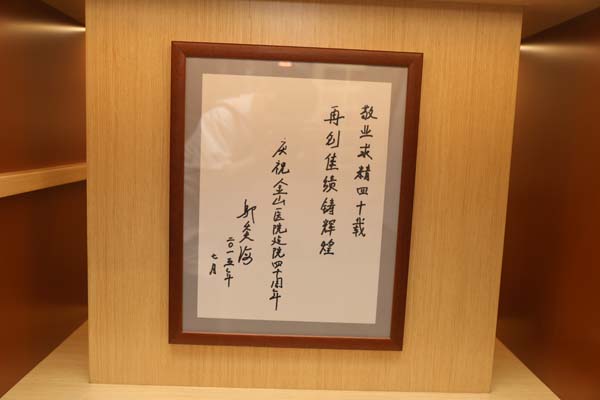 敬业求精四十载
再创佳绩铸辉煌
庆祝金山医院建院四十周年
二〇一五年
七月